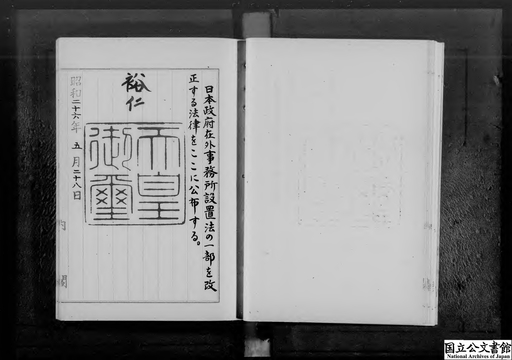 日本政府在外事務所設置法の一部を改
正する法律をここに公布する。
裕仁
天皇
御璽
昭和二十六年 五月二十八日
内閣
国立公文書館
National Archives of Japan